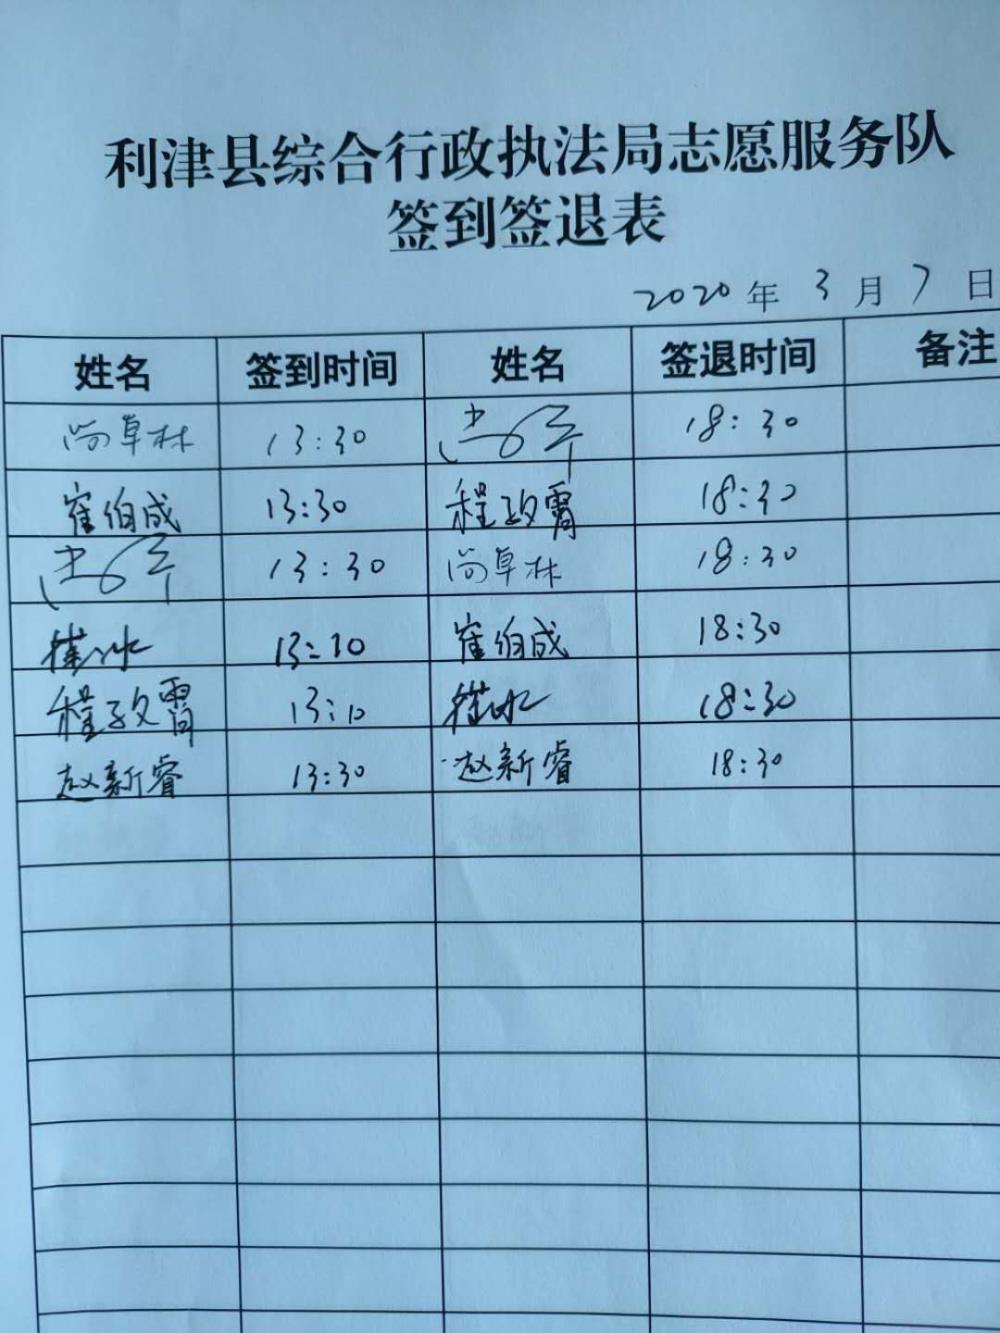 利津县综合行政执法局志愿服务队
签到签退表
2020年3月7日
姓名 签到时间 姓名 签退时间 备注
尚卓林 13:30 18:30
崔伯成 13:30 程政霄 18:30
13:30 尚卓林 18:30
13:10 崔伯成 18:30
程政霄 13:10 18:30
赵新睿 13:30 赵新睿 18:30